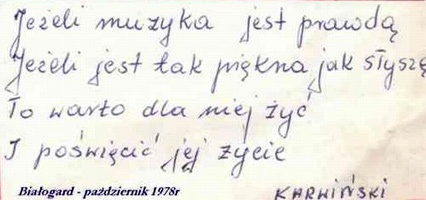 Jeżeli muzyka jest prawdą
Jeżeli jest tak piękna jak słyszę
To warto dla niej żyć
I poświęcić jej życie
Białogard - październik 1978r
KARWIŃSKI